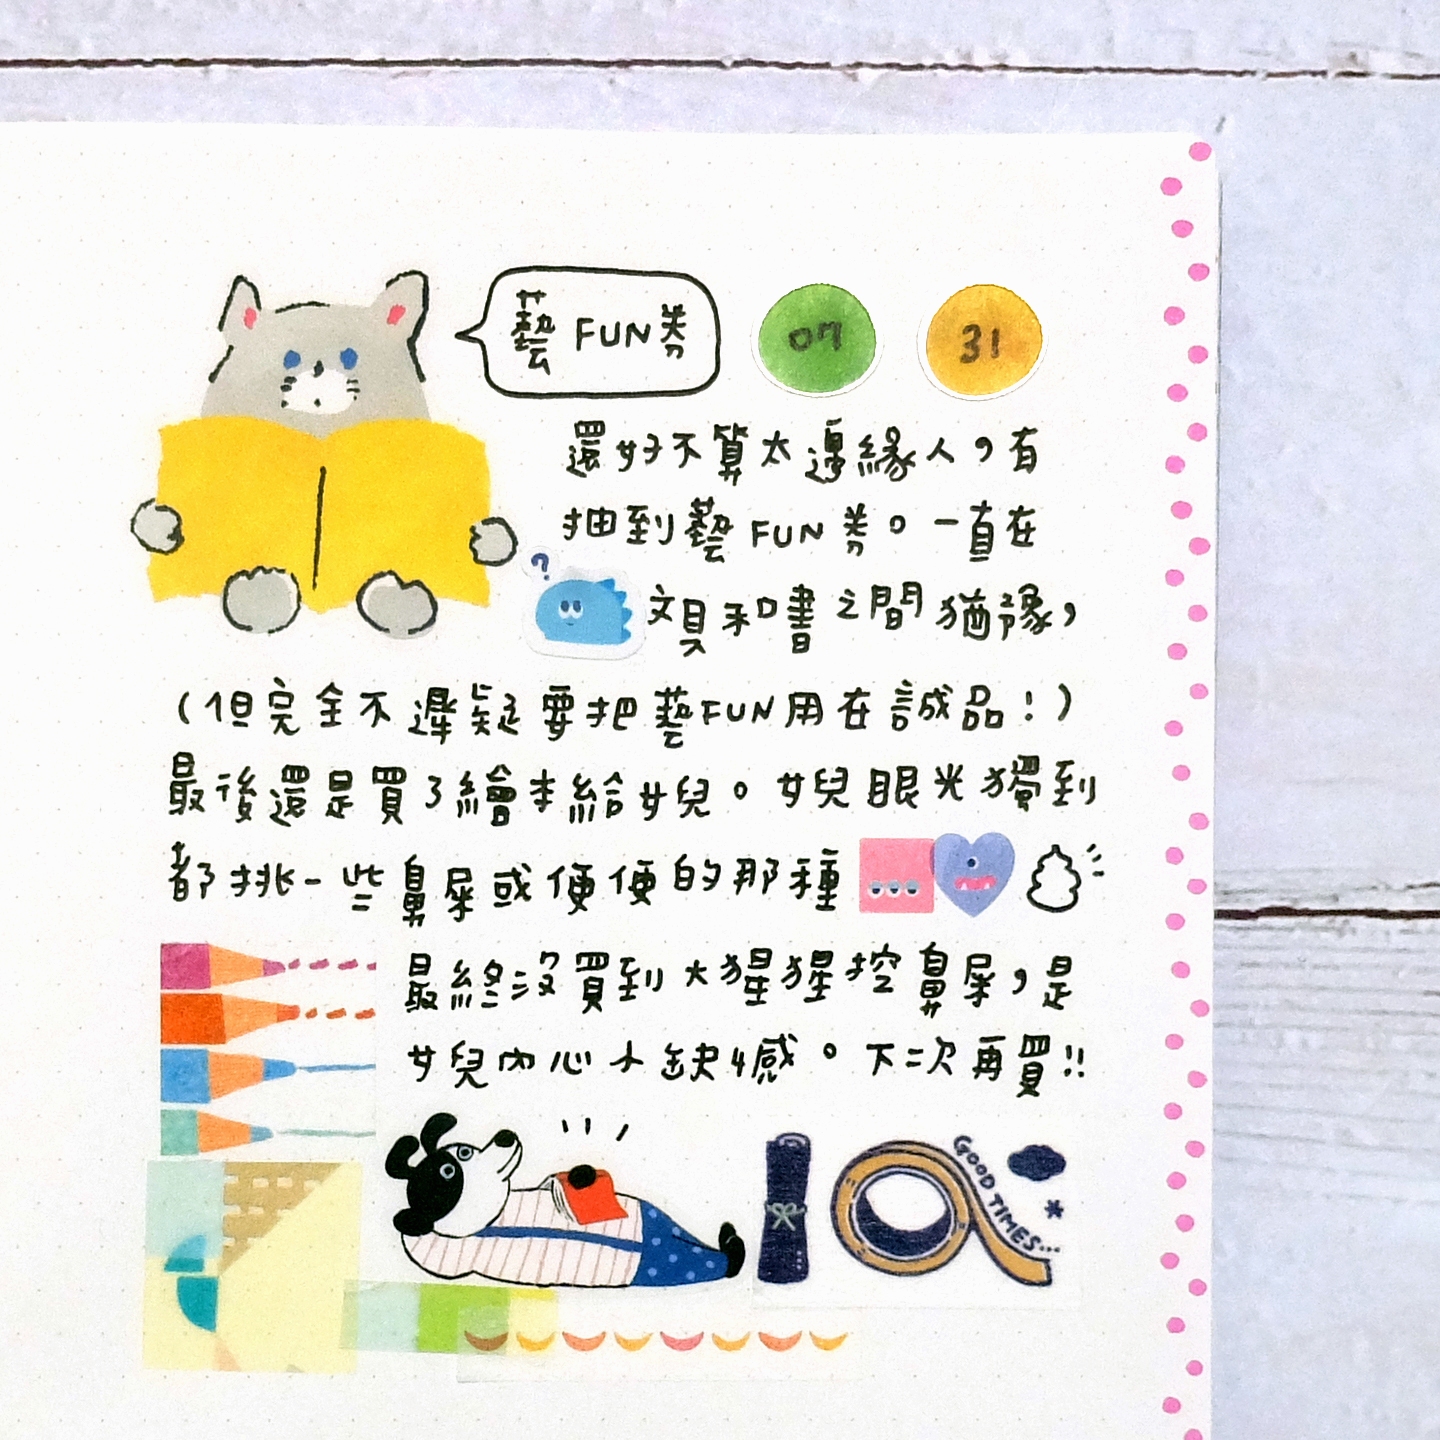 藝FUN券
07 31
還好不算太邊緣人,有
抽到藝FUN券。一直在
?
文具和書之間猶豫,
(但完全不遲疑要把藝FUN用在誠品!)
最後還是買了繪本給女兒。女兒眼光獨到
都挑一些鼻屎或便便的那種
最終沒買到大猩猩挖鼻屎,是
女兒內心小缺憾。下次再買!!
GOOD TIMES...